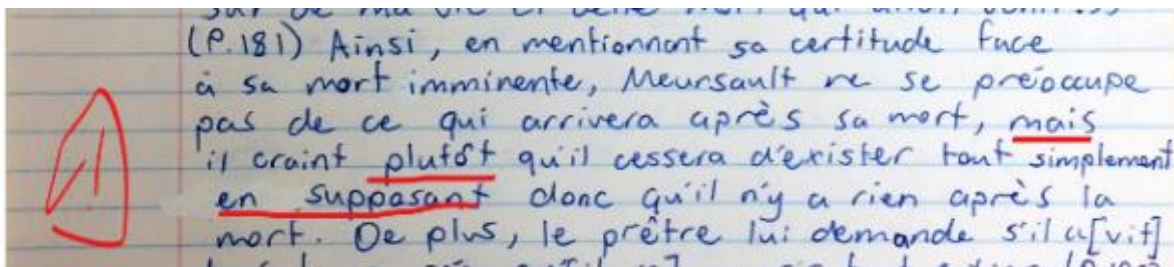 sur de ma vie et cette mort qui allait venir.>>
(P.181) Ainsi, en mentionnant sa certitude face
à sa mort imminente, Meursault ne se préoccupe
pas de ce qui arrivera après sa mort, mais
il craint plutôt qu'il cessera d'exister tout simplement
en supposant donc qu'il n'y a rien après la
mort. De plus, le prêtre lui demande s'il a[vit]